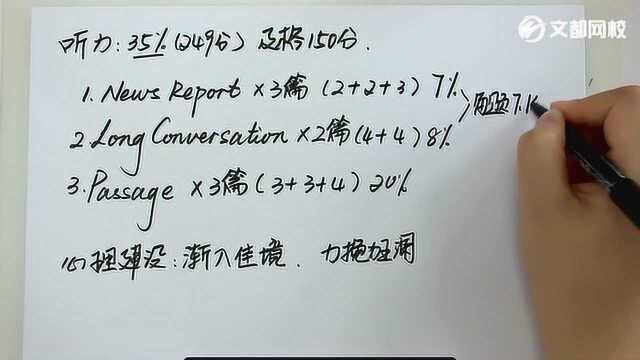 文都网校
听力:35%(249分) 及格150分.
1. News Report ×3篇 (2+2+3) 7%
2. Long Conversation ×2篇 (4+4) 8%
3. Passage ×3篇 (3+3+4) 20%
每题7.1
心理建设:渐入佳境. 力挽狂澜